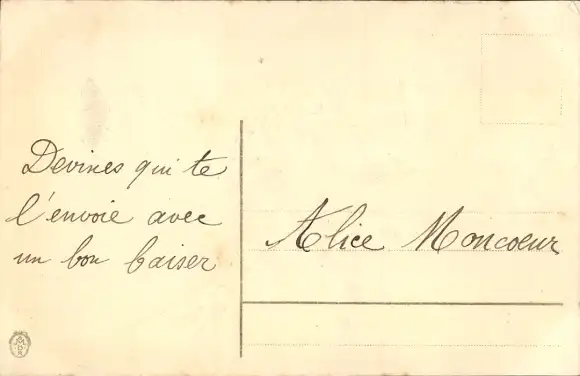 Devines qui te
l'envoie avec
un bon baiser
Alice Moncoeur